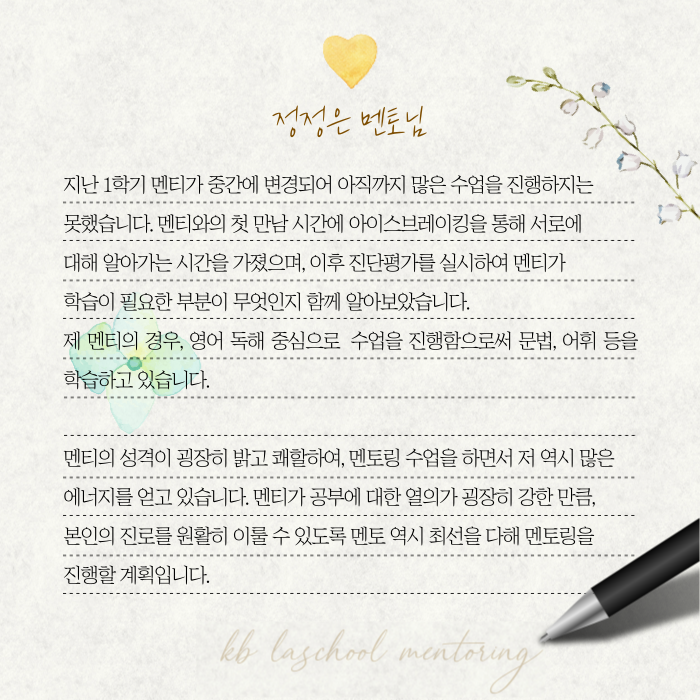 정정은 멘토님
지난 1학기 멘티가 중간에 변경되어 아직까지 많은 수업을 진행하지는
못했습니다. 멘티와의 첫 만남 시간에 아이스브레이킹을 통해 서로에
대해 알아가는 시간을 가졌으며, 이후 진단평가를 실시하여 멘티가
학습이 필요한 부분이 무엇인지 함께 알아보았습니다.
제 멘티의 경우, 영어 독해 중심으로 수업을 진행함으로써 문법, 어휘 등을
학습하고 있습니다.
멘티의 성격이 굉장히 밝고 쾌할하여, 멘토링 수업을 하면서 저 역시 많은
에너지를 얻고 있습니다. 멘티가 공부에 대한 열의가 굉장히 강한 만큼,
본인의 진로를 원활히 이룰 수 있도록 멘토 역시 최선을 다해 멘토링을
진행할 계획입니다.
kb laschool mentoring